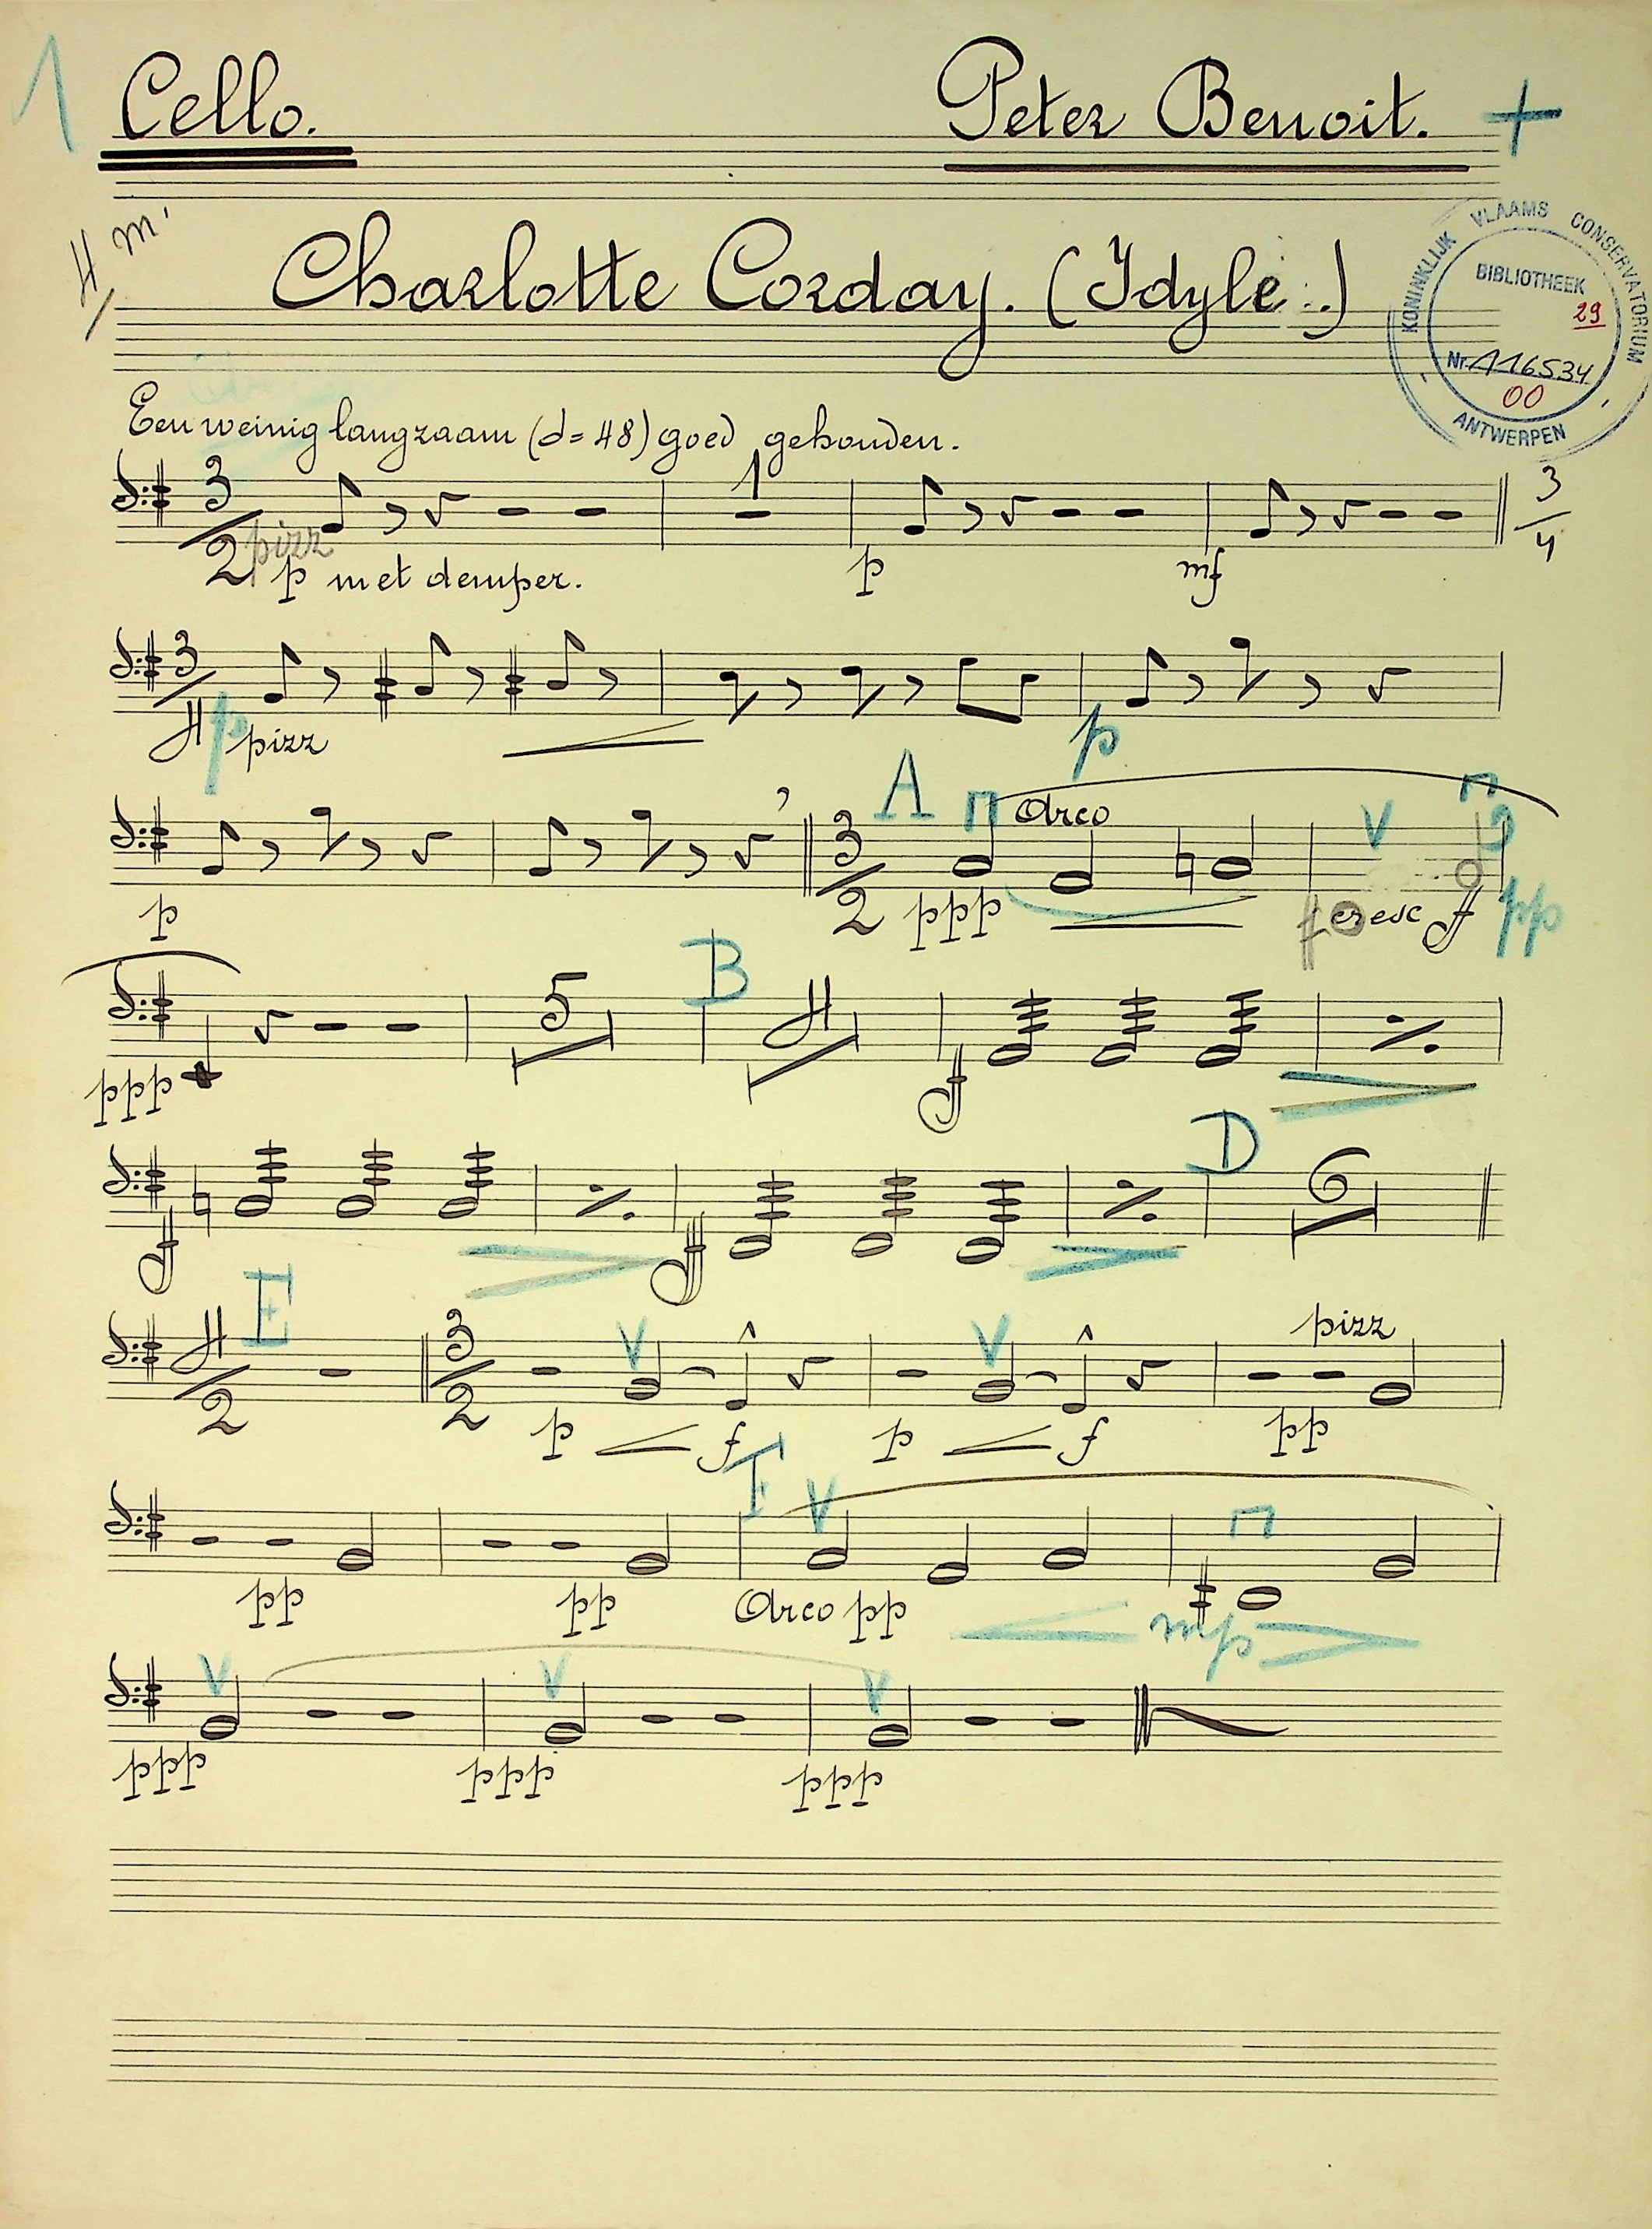 1 Cello. Peter Benoit. +
4 m.
Charlotte Corday. (Idyle..)
KONINKLIJK VLAAMS CONSERVATORIUM
BIBLIOTHEEK
29
Nr. A116534
00
ANTWERPEN
Een weinig langzaam (d = 48) goed gehouden.
3 1 3
2 4
pizz
p met demper. p mf
3
4 p pizz p
A Arco
3
2
p ppp cresc f pp
5 B 4
ppp f
D 6
f f
E
4 3 pizz
2 2
p f p f pp
F
pp pp Arco pp mp
ppp ppp ppp